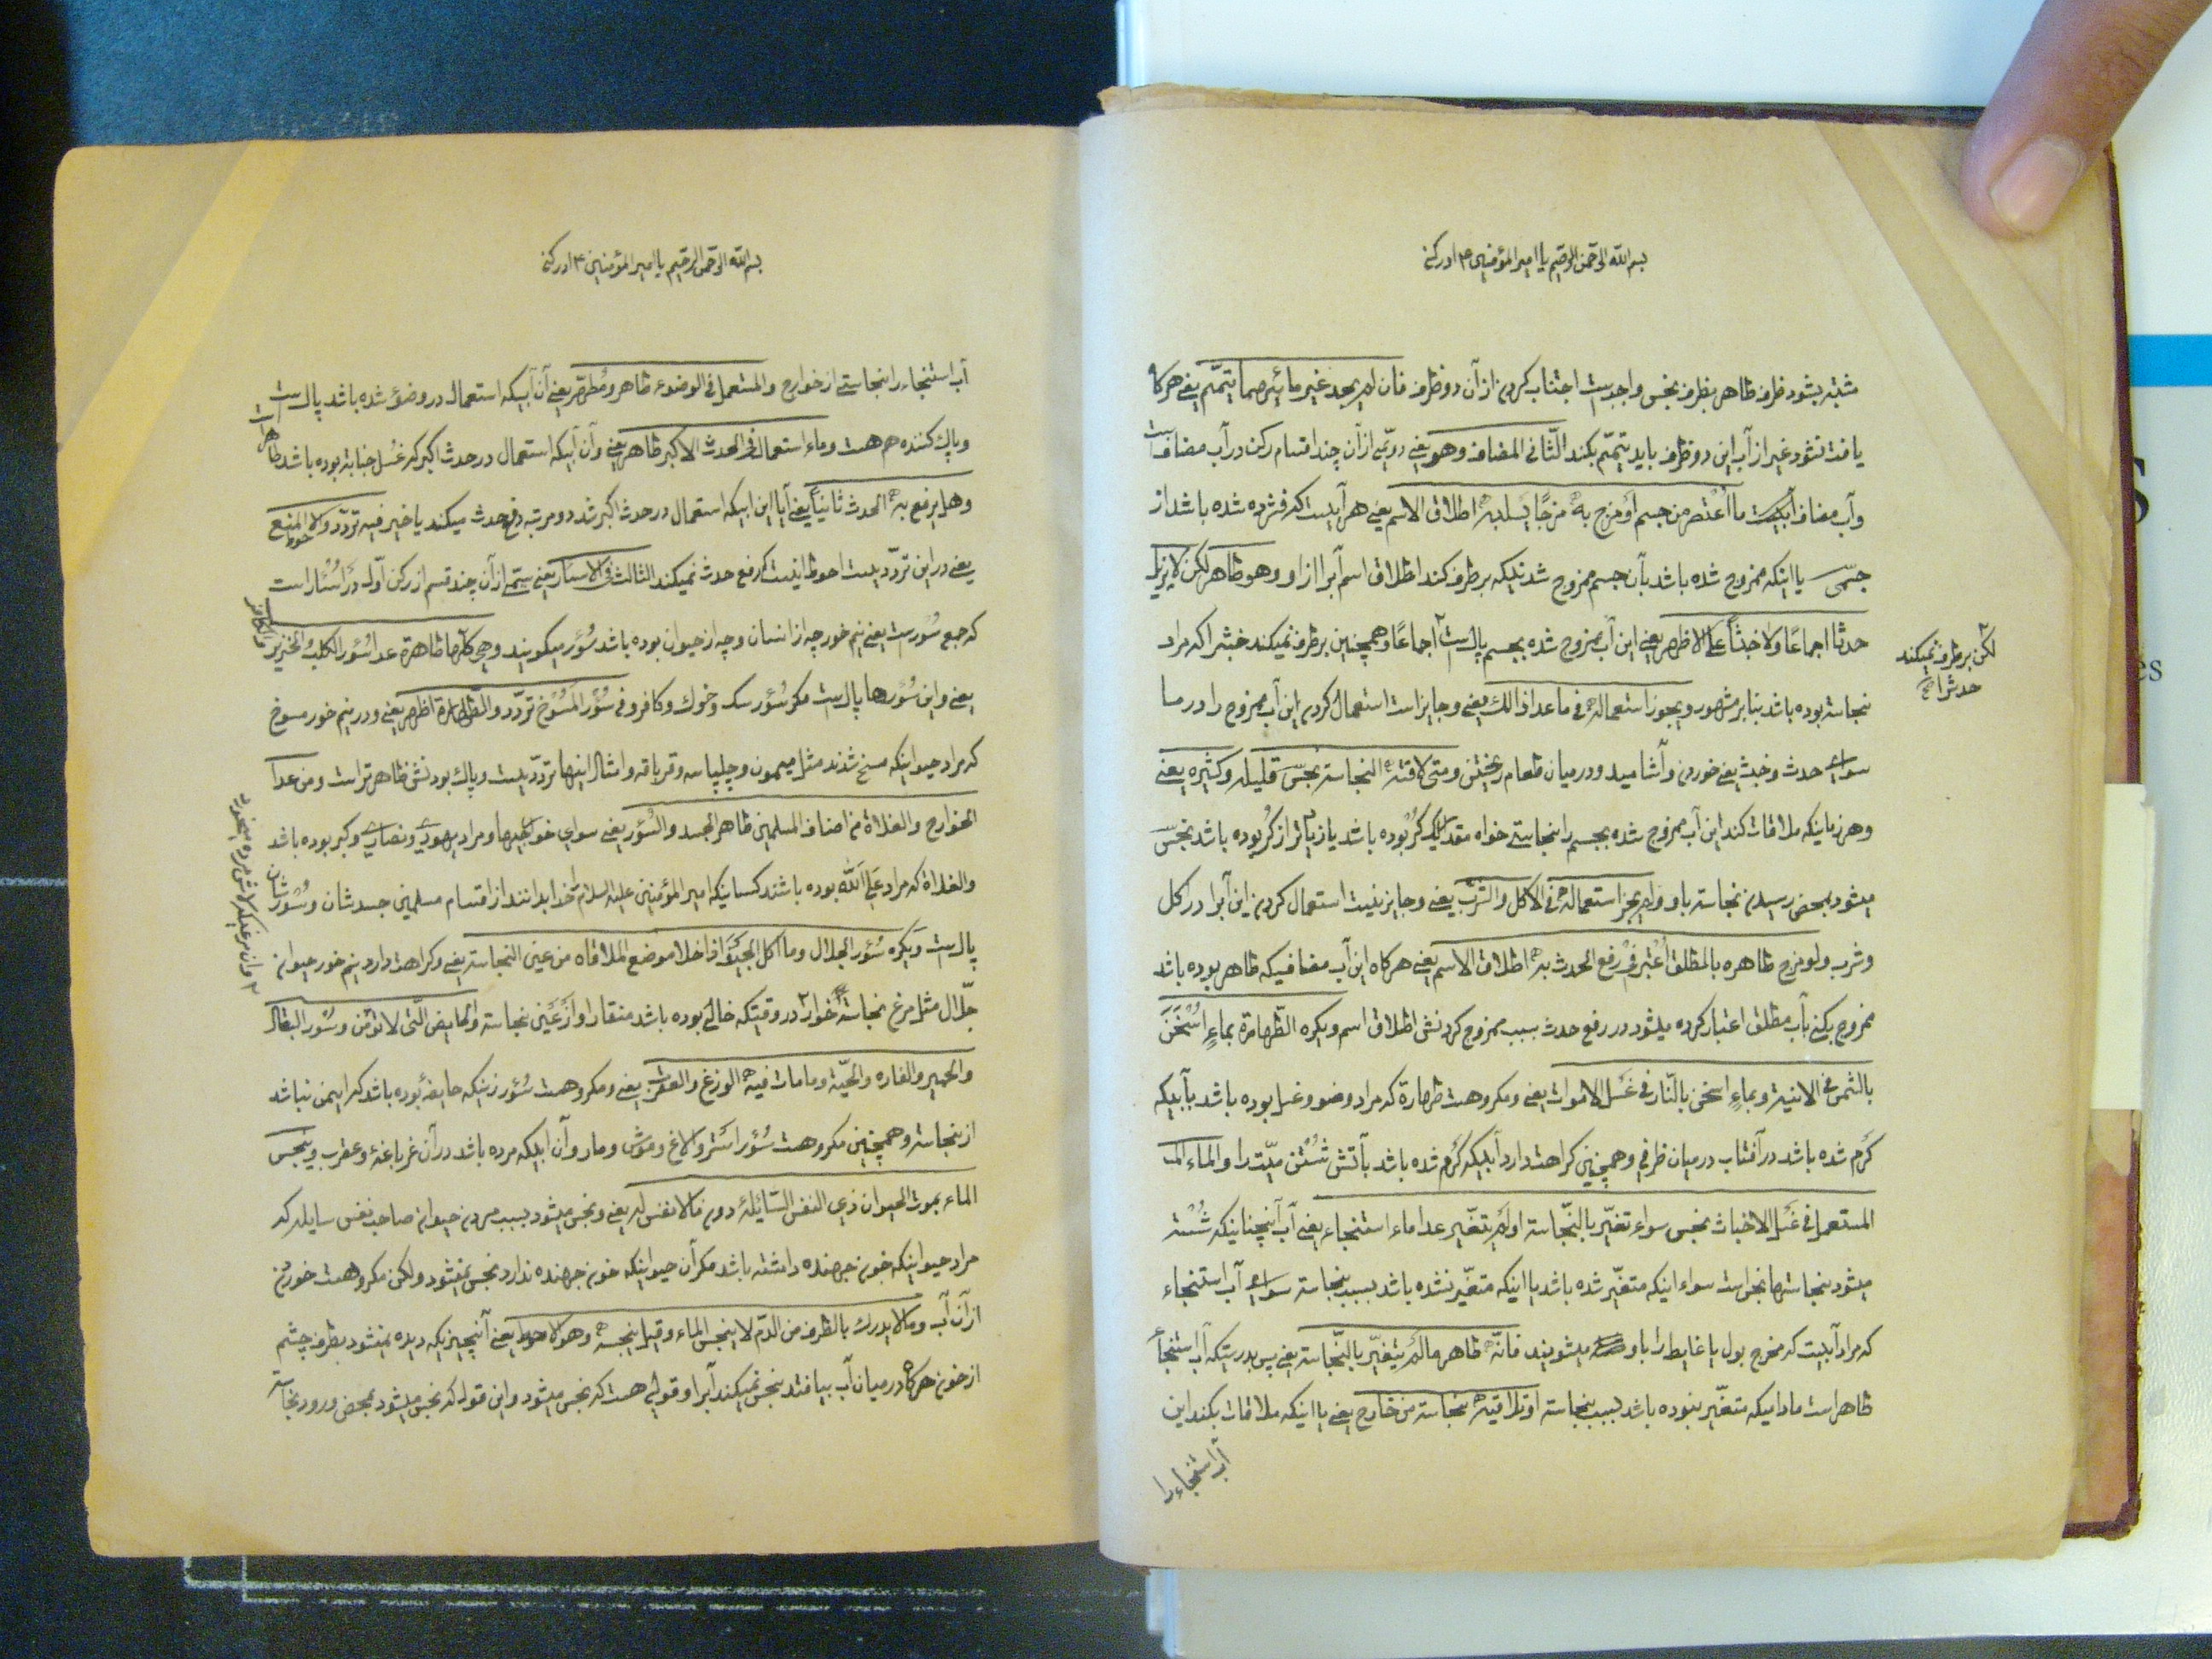 بسم الله الرحمن الرحیم یا امیر المؤمنین ع ادرکنی
مشتبه بشود ظرف طاهر بظرف نجس واجبست اجتناب کردن از آن دو ظرف فان لم یجد غیر مائیهما یتمّم یعنی هرکاه
یافت نشود غیر از آب این دو ظرف باید تیمّم بکند الثّانی المضاف وهو یعنی دویّمی از آن چند اقسام رکن در آب مضاف است
وآب مضاف آبیست ما اعْتُصر من جسم أو مُزج به مزجًا یسلبه اطلاق الاسم یعنی هر آبیست که فشرده شده باشد از
جسمی یا اینکه ممزوج شده باشد بآن جسم ممزوج شدنیکه برطرف کند اطلاق اسم آبرا از او وهو طاهر لکن لا یزیل
حدثا اجماعًا ولا خبثاً علی الاظهر یعنی این آب ممزوج شده بجسم پاکست اجماعًا وهمچنین برطرف نمیکند خبثیرا که مراد
لکن برطرف نمیکند
حدثرا صح
نجاسة بوده باشد بنا بر مشهور ویجوز استعماله فی ما عدا ذالک یعنی وجایز است استعمال کردن این آب ممزوج را در ما
سوای حدث وخبث یعنی خوردن وآشامید ودر میان طعام ریختن ومتی لاقته النجاسة نجسَ قلیله وکثیره یعنی
وهر زمانیکه ملاقات کند این آب ممزوج شده بجسم را نجاستی خواه مقدار یک کُر بوده باشد یا زیادتر از کُر بوده باشد نجسَ
میشود بمحض رسیدن نجاسة باو ولم یجز استعماله فی الاکل والشرب یعنی وجایز نیست استعمال کردن این آبرا در اکل
وشرب ولو مزج طاهره بالمطلق اُعْتبر فی رفع الحدث به اطلاق الاسم یعنی هرکاه این آب مضافیکه طاهر بوده باشد
ممزوج بکنی بآب مطلق اعتبار کرده میشود در رفع حدث بسبب ممزوج کردنش اطلاق اسم ویکره الطّهارة بماءٍ اُسْخُنَ
بالشمس فی الانیة وبماءٍ اسخن بالنّار فی غسل الاموات یعنی ومکروهست طهارة که مراد وضو وغسل بوده باشد بآبیکه
کَرم شده باشد در آفتاب در میان ظرفی وهمچنین کراهت دارد آبیکه کَرم شده باشد بآتش شستن میّت را والماء
المستعمل فی غَسل الاخباث نجس سواء تغیّر بالنّجاسة اولم یتغّیر عدا ماء استنجاء یعنی آب آنچنانیکه شُسته
میشود بنجاستها نجس است سواء اینکه متغیّر شده باشد یا اینکه متغیّر نشده باشد بسبب نجاسة سوای آب استنجاء
که مراد آبیست که مخرج بول یا غایط را باو میشویند فانّه طاهر مالم یتغیّر بالنّجاسة یعنی پس بدرستیکه آب استنجاء
طاهر است مادامیکه متغیّر نبوده باشد بسبب نجاسة او تلاقیه نجاسة من خارج یعنی یا اینکه ملاقات بکند این
آب استنجاء را
بسم الله الرحمن الرحیم یا امیر المؤمنین ع ادرکنی
آب استنجاء را نجاستی از خوارج والمستعمل فی الوضوء طاهر ومُطهّر یعنی آن آبیکه استعمال در وضوء شده باشد پاکست
وپاک کننده هم هست وماء استعمال فی الحدث الاکبر طاهر یعنی وآن آبیکه استعمال در حدث اکبر که غُسل جنابة بوده باشد طاهر است
وهل یرفع به الحدث ثانیًا یعنی آیا این آبیکه استعمال در حدث اکبر شد دو مرتبه رفع حدث میکند یا خیر فیه تردّد والاحوط المنع
یعنی در این تردّدیست احوط اینست که رفع حدث نمیکند الثالث فی الاسئار یعنی سیّمی از آن چند قسم از رکن اوّل در اَسْئار است
که جمع سُؤرست یعنی نیم خور چه از انسان وچه از حیوان بوده باشد سُؤر میکویند وهی کلّها طاهرة عدا سُؤر الکلب والخنزیر والکافر
یعنی واین سُؤرها پاکست مکر سُؤر سک وخوک وکافر وفی سُؤر المَسُوخ تردّد والطّهارة اظهر یعنی ودر نیم خور مسوخ
که مراد حیوانیکه مسخ شدند مثل میمون وچلپاسه وقرباقه وامثال اینها تردّدیست وپاک بودنش ظاهر تر است ومن عدا
الخوارج والغلاة من اصناف المسلمین طاهر الجسد والسُؤر یعنی سوای خوارجیها ومراد یهودی ونصاری وکبر بوده باشد
والغلاة که مراد علی اللّه بوده باشند کسانیکه امیر المؤمنین علیه السلام را خدا بدانند از اقسام مسلمین جسدشان وسُؤرشان
پاکست ویکره سُؤر الجلال وما اکل الجیَفَ اذا خلا موضع الملاقاة من عین النجاسة یعنی وکراهت دارد نیم خور حیوان
جلّال مثل مرغ نجاسة خوار در وقتیکه خالی بوده باشد منقار او از عَین نجاسة والحایض الّتی لا تؤمن وسُؤر البغال
والحمیر والفاره والحیّة ومامات فیه الوزغ والعقرب یعنی ومکروهست سُؤر زنیکه حایض بوده باشد که ایمن نباشد
از نجاسة وهمچنین مکروهست سُؤر استر والاغ وموش ومار وآن آبیکه مرده باشد در آن غرباغه وعقرب وینجس
الماء بموت الحیوان ذی النفس السّائلة دون مالا نفس له یعنی ونجس میشود بسبب مردن حیوان صاحب نفس سایله که
مراد حیوانیکه خون جهنده داشته باشد مکر آن حیوانیکه خون جهنده ندارد نجس نمیشود ولکن مکروهست خوردن
از آن آب ومالا یدرک بالطرف من الدّم لا ینجس الماء وقیل ینجسه وهو الاحوط یعنی آنچیزیکه دیده نمیشود بطرف چشم
از خون هرکاه در میان آب بیافتد نجس نمیکند آبرا وقولی هست که نجس میشود واین قول که نجس میشود بمحض ورود نجاسة